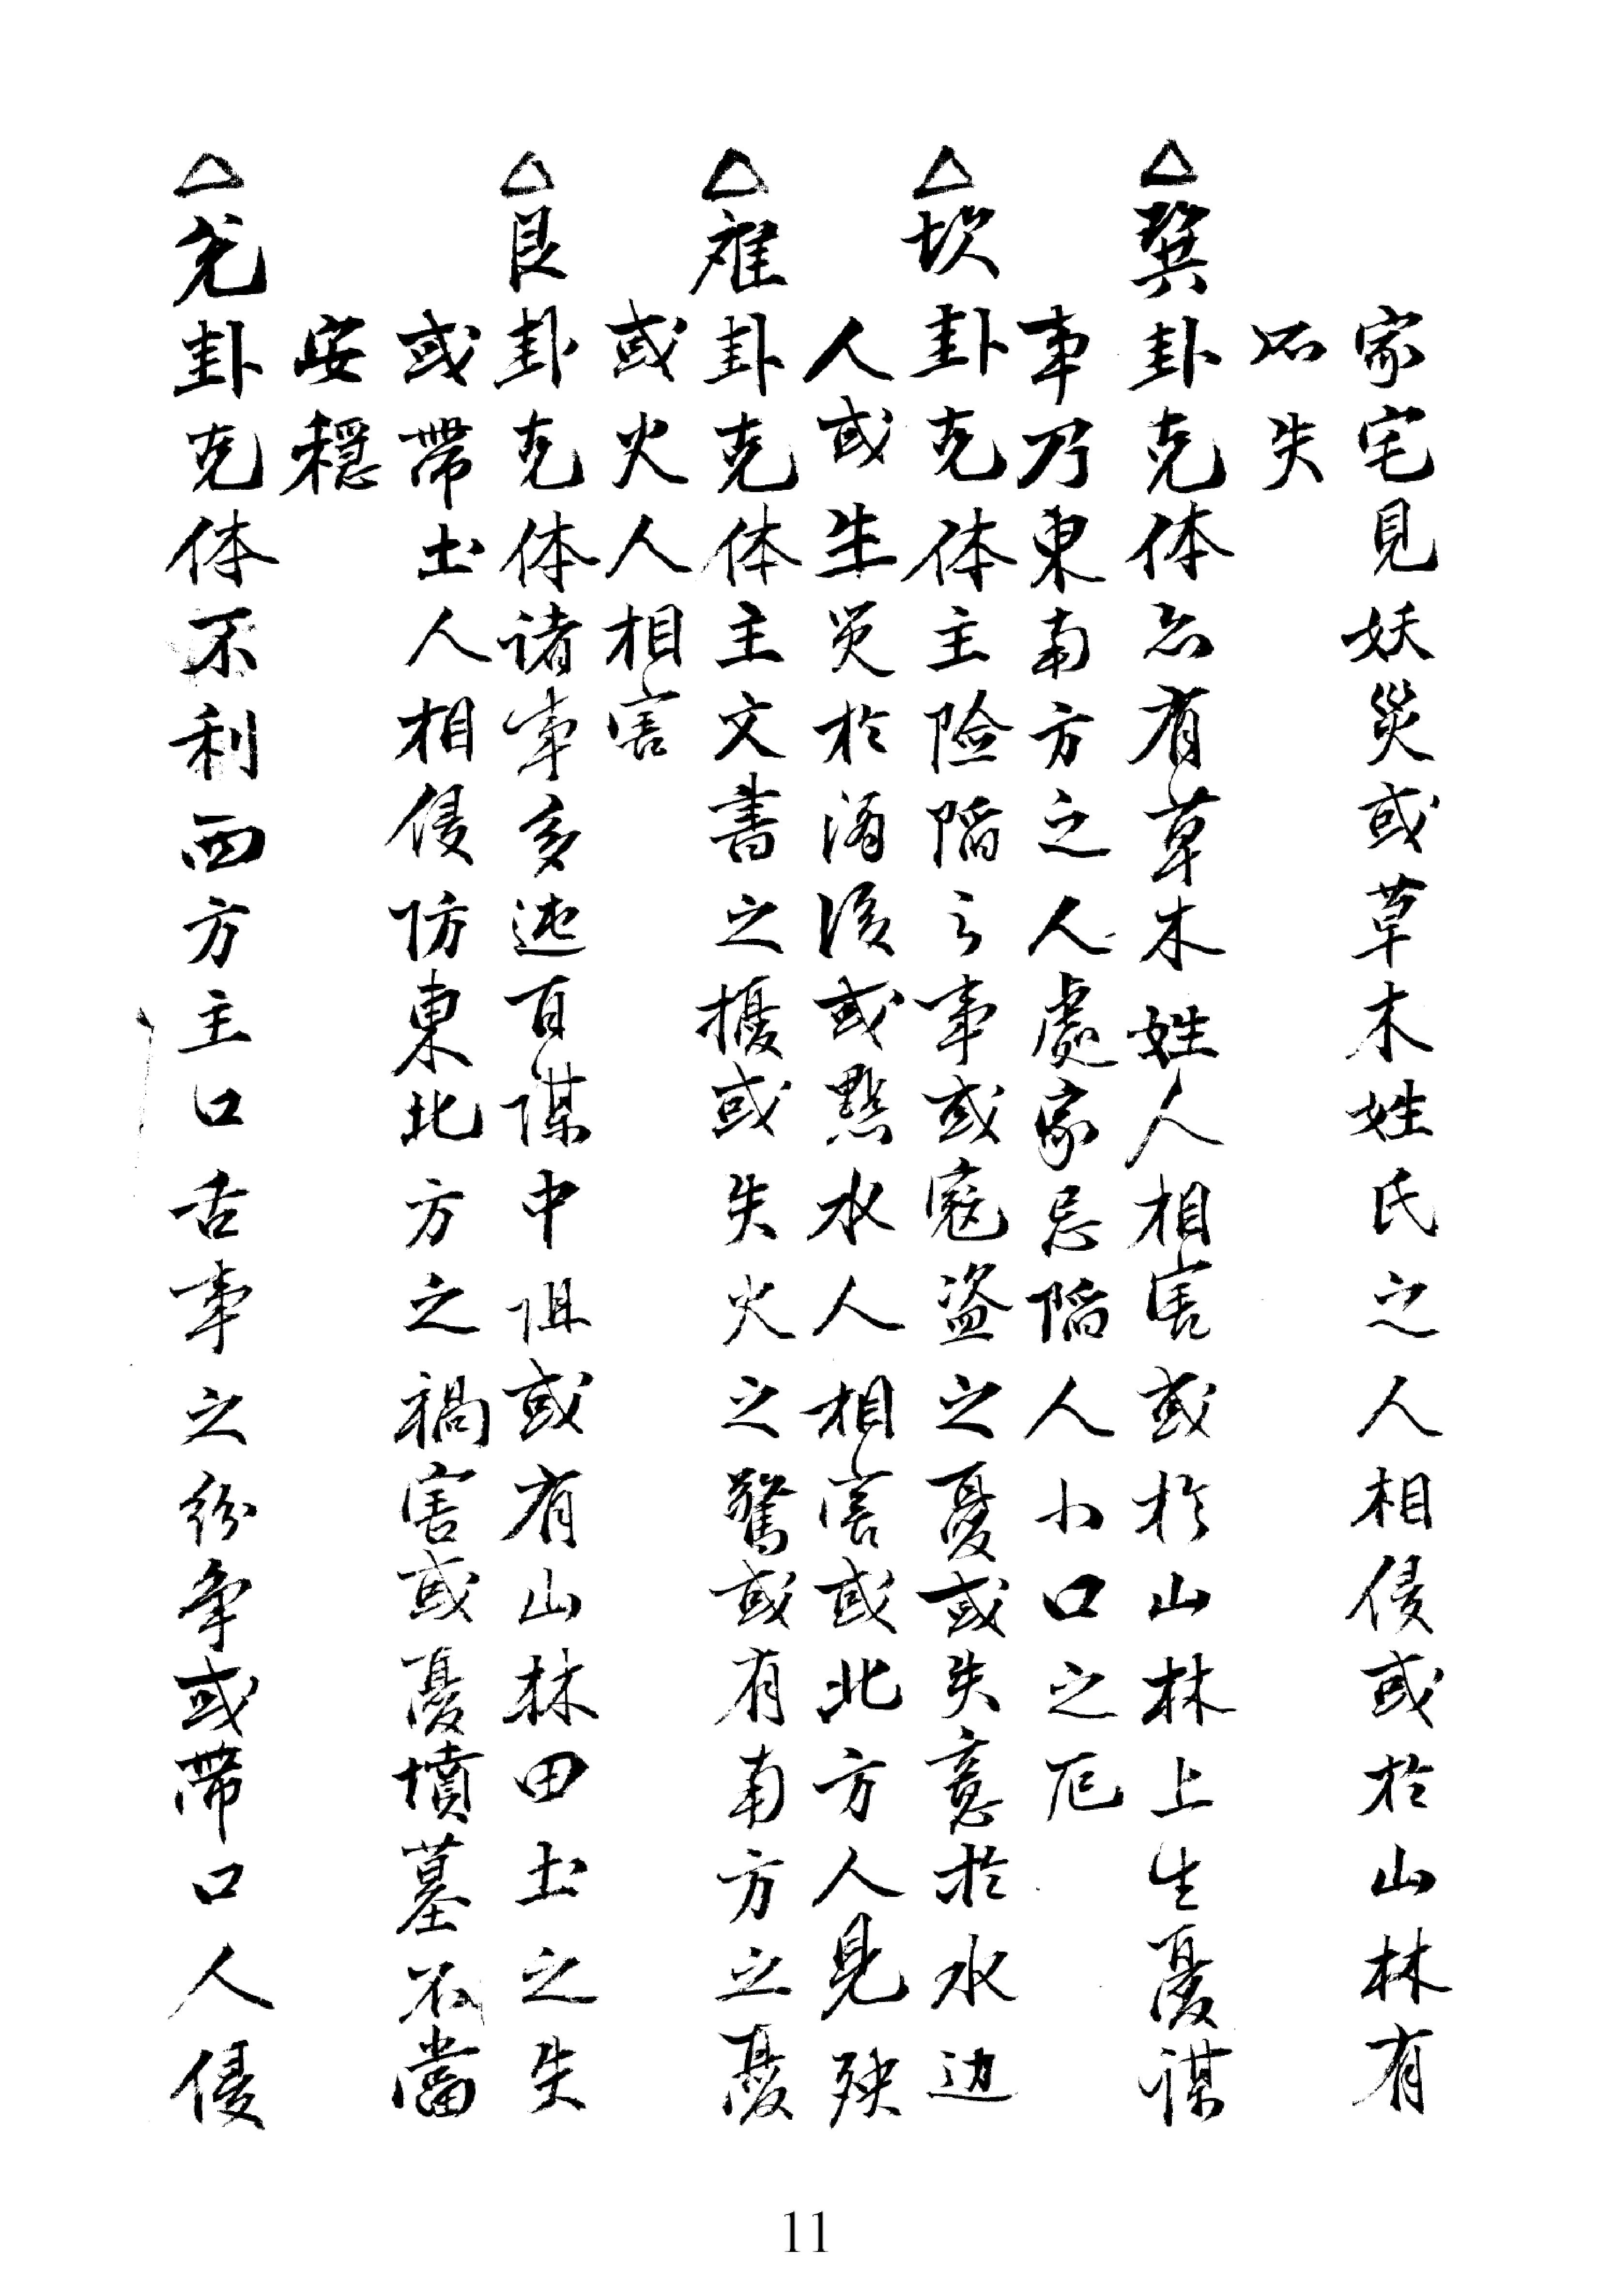 家宅見妖災或草木姓氏之人相侵或於山林有
所失
△巽卦克体忌有草木姓人相害或於山林上生憂謀
事乃東南方之人處家忌陷人小口之厄
△坎卦克体主险陷之事或寇盜之憂或失意於水边
人或生災於酒後或點水人相害或北方人見殃
△离卦克体主文書之擾或失火之驚或有南方之憂
或火人相害
△艮卦克体诸事多迍百谋中阻或有山林田土之失
或帶土人相侵防東北方之禍害或憂墳墓不當
安穩
△兑卦克体不利西方主口舌事之纷争或帶口人侵
11